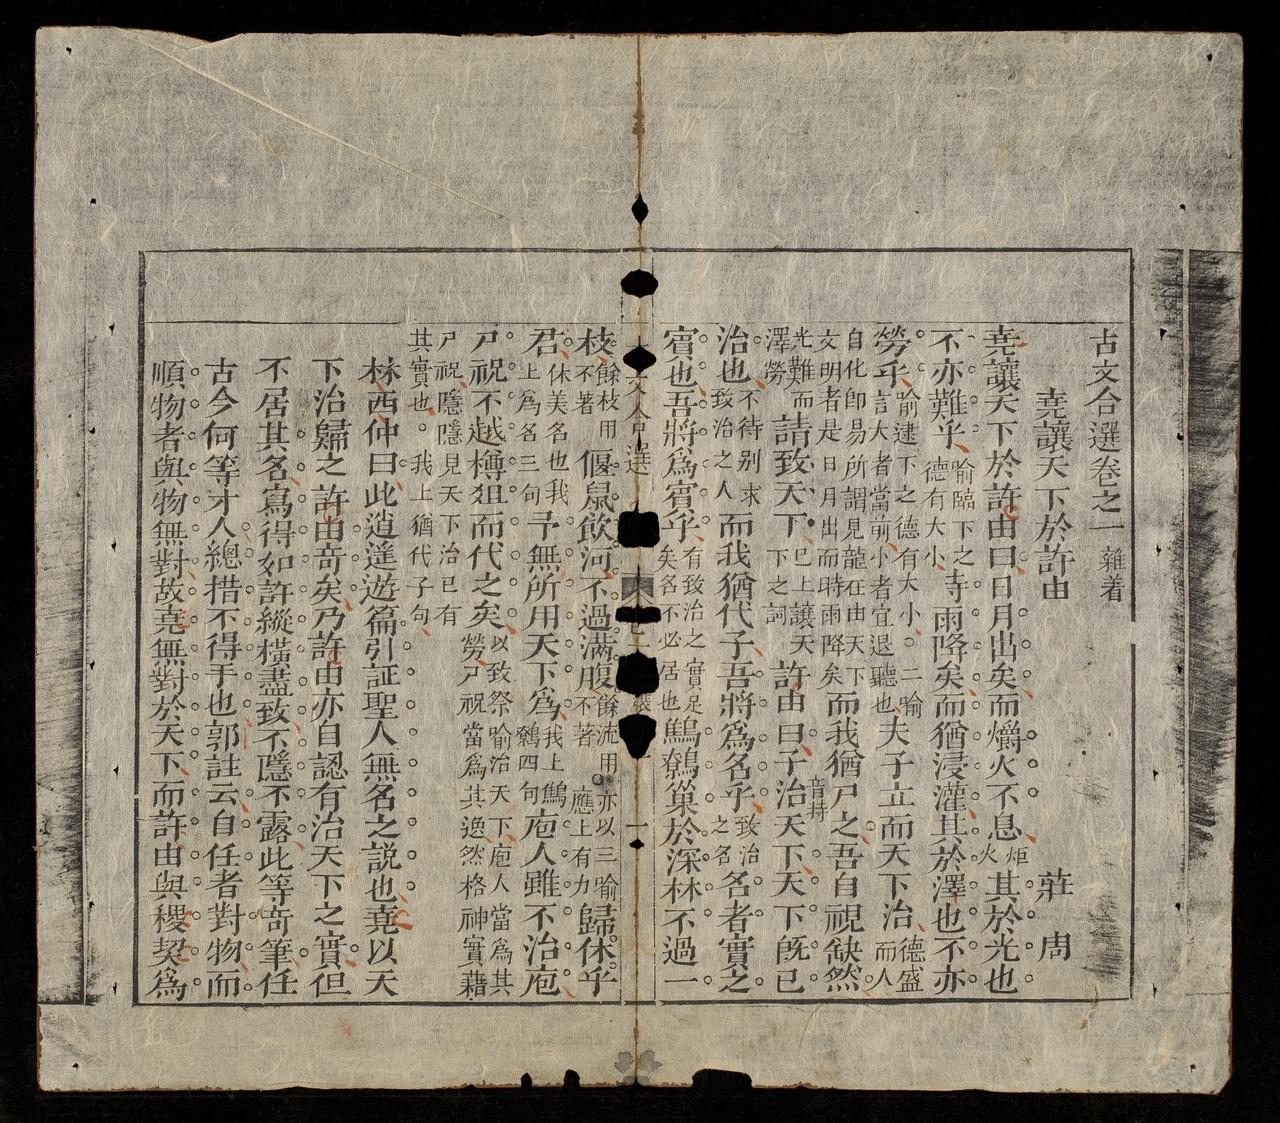 古文合選卷之一 雜着
堯讓天下於許由 莊周
堯讓天下於許由曰日月出矣而爝火不息炬火其於光也
不亦難乎喻臨下之德有大小時雨降矣而猶浸灌其於澤也不亦
勞乎喻逮下之德有大小〇二喻言大者當前小者宜退聽也夫子立而天下治德盛而人
自化卽易所謂見龍在田天下文明者是日月出而時雨降矣而我猶尸之吾自視缺然
光難而澤勞請致天下巳上讓天下之詞許由曰子治音持天下天下旣已
治也不待别求致治之人而我猶代子吾將爲名乎致治之名名者實之
賓也吾將爲賓乎有致治之實足矣名不必居也鷦鷯巢於深林不過一
枝餘枝用不著偃鼠飮河不過滿腹餘流用不著〇亦以三喻應上有力歸休乎
君休美名也我上爲名三句予無所用天下爲我上鷦鷯四句庖人雖不治庖
尸祝不越樽俎而代之矣以致祭喻治天下庖人當爲其勞尸祝當爲其逸然格神實藉
尸祝隱隱見天下治已有其實也。我上猶代子句
林西仲曰此逍遙遊篇引証聖人無名之說也堯以天
下治歸之許由竒矣乃許由亦自認有治天下之實但
不居其名寫得如許縱橫盡致不隱不露此等竒筆任
古今何等才人總措不得手也郭註云自任者對物而
順物者與物無對故堯無對於天下而許由與稷契爲
文合選
一